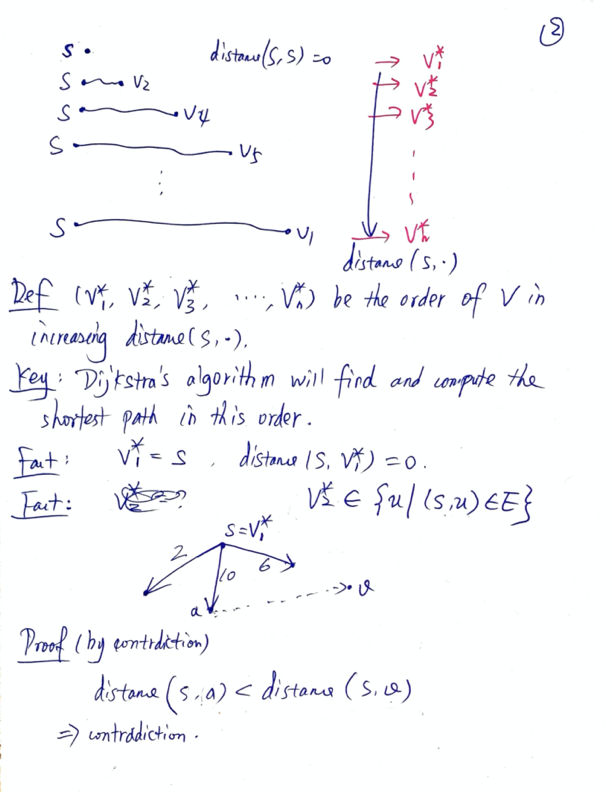 ②
S distance(S,S)=0 → V₁*
S V₂ → V₂*
S V₄ → V₃*
S V₅
⋮
S V₁ → Vₙ*
distance(S,·)
Def (V₁*, V₂*, V₃*, ····, Vₙ*) be the order of V in
increasing distance(S,·).
Key: Dijkstra's algorithm will find and compute the
shortest path in this order.
Fact: V₁* = S , distance(S, V₁*) = 0.
Fact: V₂* ∈ {u | (s,u) ∈ E}
S=V₁*
2 10 6
a v
Proof (by contrdiction)
distance(S,a) < distance(S,v)
⇒ contrddiction.